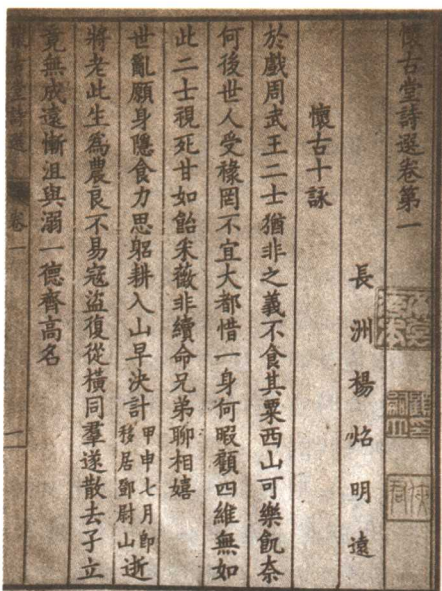 懷古堂詩選卷第一
長洲楊炤明遠
懷古十詠
於戲周武王二士猶非之義不食其粟西山可樂飢奈
何後世人受祿罔不宜大都惜一身何暇顧四維無如
此二士視死甘如飴采薇非續命兄弟聊相嬉
世亂願身隱食力思躬耕入山早決計甲申七月即移居鄧尉山逝
將老此生為農良不易寇盜復從橫同羣遂散去孑立
竟無成遠慚沮與溺一德齊高名
懷古堂詩選 卷一 一